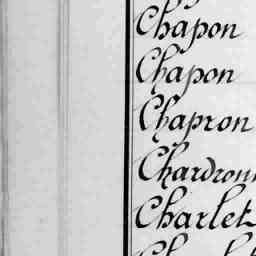 Chapon
Chapon
Chapron
Chardronn
Charlet